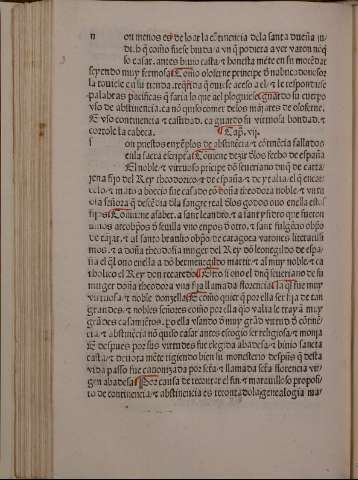 n on menos es de loar la cõtinencia dela santa dueña iu
di. h q̃ como fuese biuda avn q̃ pudiera aver varon nõ q̃
so casar. antes biuio casta & honesta mẽte en su mocedat
seyendo muy fermosa Como oloferne principe đ nabucdonosor
la touiese en su tienda. req̃rida q̃ ouiese aceso a el & le respondiese
palabras pacificas q̃ faria lo que a el ploguiese guardo su cuerpo
vso de abstinencia. ca nõ quiso comer delos mãjares de oloferne.
E vso continencia & castidad. ca guardo su virtuosa bondad. &
cortole la cabeça. Cap. vij.
s on puestos enxẽplos de abstinẽcia & cõtinẽcia fallados
enla sacra escriptura Conuiene dezir đlos fechos de españa
El noble & virtuoso principe đõ seueriano duq̃ de carta
jena fijo del Rey theodorico & de españa
lo & mato a boecio fue casado cõ doña theodora noble & virtu
osa señora q̃ desçẽdia đla sangre real đlos godos ouo enella estos
fijos Conuiene a saber. a sant leandro & a sant ysidro que fueron
anos arçobispos đ seuilla vno enpos đ otro. & sant fulgẽcio obpõ
de & al santo braulio obpõ de çaragoça varones literatisi
mos. & a doña theodosia muger del Rey đõ leonegildo de espa
ña el q̃l ouo enella a đõ hermenegildo martir. & al muy noble & ca
tholico el Rey don recaredo Otrosi ouo el dicho duq̃ seueriano de su
muger doña theodora vna fija llamada florencia la q̃l fue muy
virtuosa & noble donzella E como quier q̃ por ella ser fija de tan
grandes & nobles señores como por ella q̃ lo valia le trayã muy
grãdes casamiẽtos. po ella vsando đ muy grãd virtud đ cõtinẽ
cia & abstinẽcia nõ quiso casar antes escogio ser religiosa & monja
E despues por sus virtudes fue elegida abadesa. & biuio sancta
casta & deuota mẽte rigiendo bien su monesterio despues q̃ desta
vida paso fue canonizada por scã & llamada scã florencia vir
gen abadesa Por causa de recontar el fin & marauilloso proposi
to de continencia & abstinencia es recontado la genealogia ma-